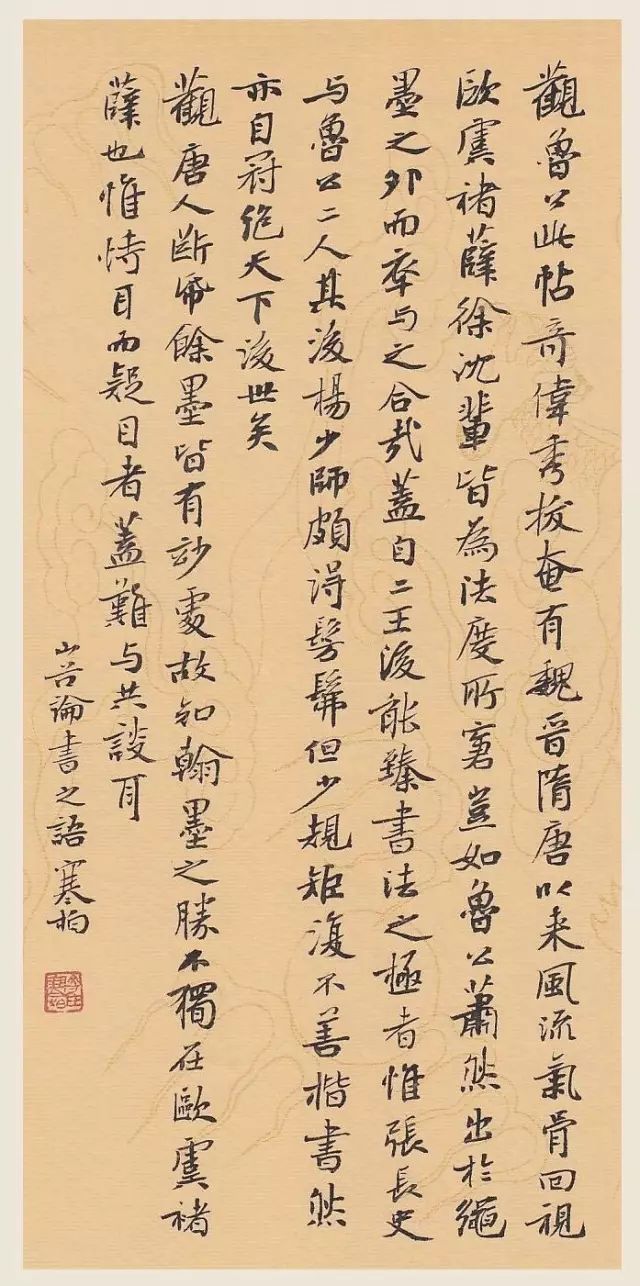 觀魯公此帖奇偉秀拔奄有魏晉隋唐以来風流氣骨回視
歐虞褚薛徐沈輩皆為法度所窘豈如魯公蕭然出於繩
墨之外而卒与之合哉蓋自二王後能臻書法之極者惟張長史
与魯公二人其後楊少師頗得髣髴但少規矩復不善楷書然
亦自冠絶天下後世矣
觀唐人断紙餘墨皆有妙處故知翰墨之勝不獨在歐虞褚
薛也惟恃耳而疑目者蓋難与共談耳
山谷論書之語寒柏